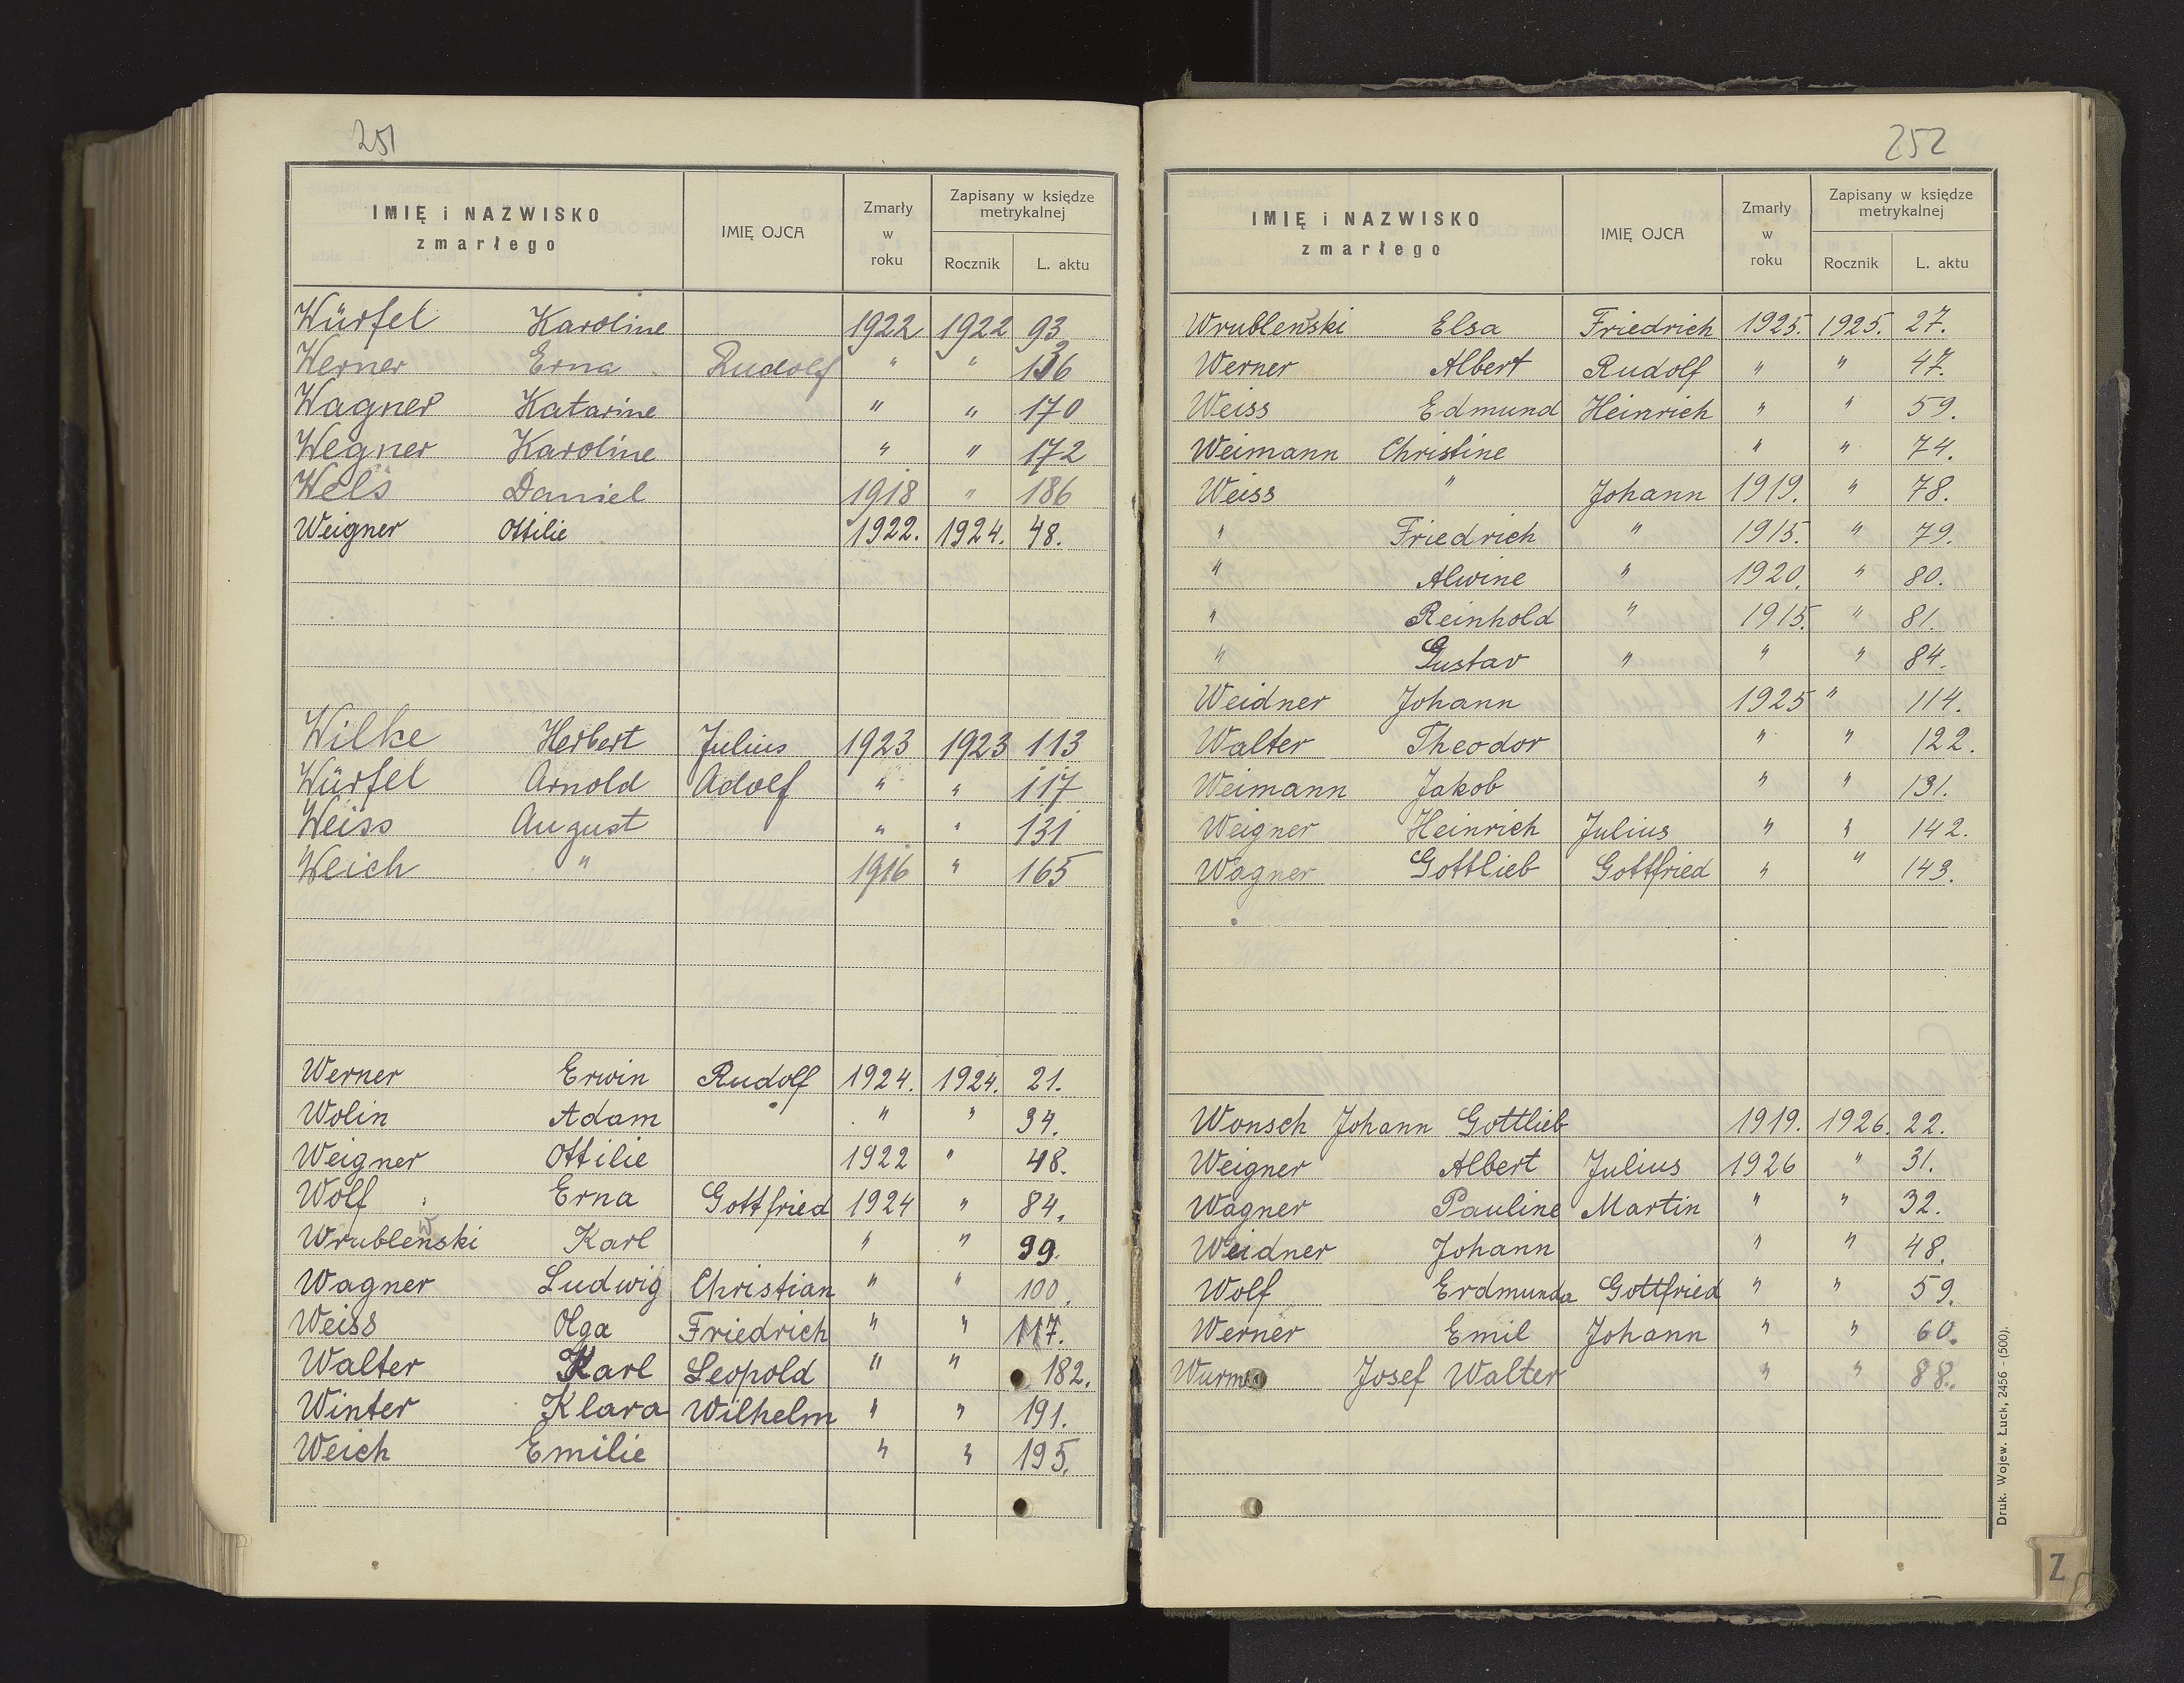 251
IMIĘ i NAZWISKO zmarłego | IMIĘ OJCA | Zmarły w roku | Zapisany w księdze metrykalnej
Rocznik | L. aktu
Würfel Karoline 1922 1922 93
Werner Erna Rudolf " " 136
Wagner Katarine " " 170
Wegner Karoline " " 172
Wels Daniel 1918 " 186
Weigner Ottilie 1922. 1924. 48.
Wilke Herbert Julius 1923 1923 113
Würfel Arnold Adolf " " 117
Weiss August " " 131
Weich " 1916 " 165
Werner Erwin Rudolf 1924. 1924. 21.
Wolin Adam " " 34.
Weigner Ottilie 1922 " 48.
Wolf Erna Gottfried 1924 " 84.
Wrublewski Karl " " 99.
Wagner Ludwig Christian " " 100.
Weiss Olga Friedrich " " 117.
Walter Karl Leopold " " 182.
Winter Klara Wilhelm " " 191.
Weich Emilie " " 195.
252
IMIĘ i NAZWISKO zmarłego | IMIĘ OJCA | Zmarły w roku | Zapisany w księdze metrykalnej
Rocznik | L. aktu
Wrublewski Elsa Friedrich 1925. 1925. 27.
Werner Albert Rudolf " " 47.
Weiss Edmund Heinrich " " 59.
Weimann Christine " " 74.
Weiss " Johann 1919. " 78.
" Friedrich " 1915. " 79.
" Alwine " 1920. " 80.
" Reinhold " 1915. " 81.
" Gustav " " " 84.
Weidner Johann 1925 " 114.
Walter Theodor " " 122.
Weimann Jakob " " 131.
Weigner Heinrich Julius " " 142.
Wagner Gottlieb Gottfried " " 143.
Wonsch Johann Gottlieb 1919. 1926. 22.
Weigner Albert Julius 1926 " 31.
Wagner Pauline Martin " " 32.
Weidner Johann " " 48.
Wolf Erdmunda Gottfried " " 59.
Werner Emil Johann " " 60.
Josef Walter " " 88.
Druk. Wojew. Łuck, 2456 - (500).
Z